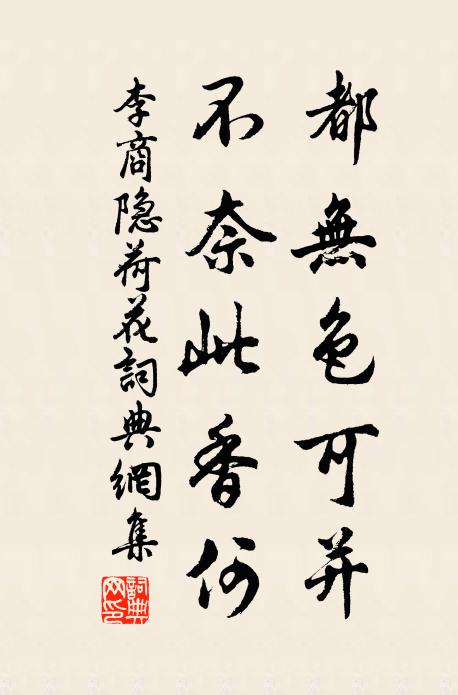 都無色可并
不奈此香何
李商隐荷花詞典網集
詞典
网印